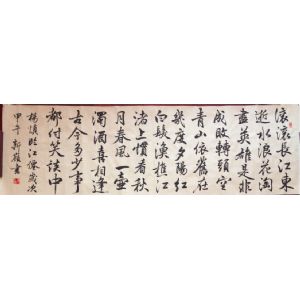 滾滾長江東
逝水浪花淘
盡英雄是非
成敗轉頭空
青山依舊在
幾度夕陽紅
白髮漁樵江
渚上慣看秋
月春風一壺
濁酒喜相逢
古今多少事
都付笑談中
楊慎臨江僊歲次
甲午書